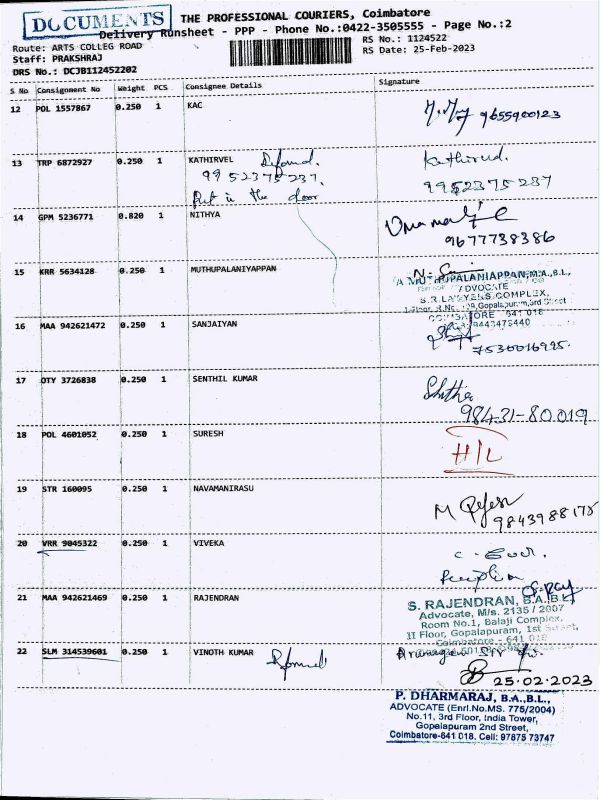 DOCUMENTS
THE PROFESSIONAL COURIERS, Coimbatore
Delivery Runsheet - PPP - Phone No.:0422-3505555 - Page No.:2
Route: ARTS COLLEG ROAD
RS No.: 1124522
Staff: PRAKSHRAJ
RS Date: 25-Feb-2023
DRS No.: DCJB112452202
S No Consignment No Weight PCS Consignee Details Signature
12 POL 1557867 0.250 1 KAC
9655900123
13 TRP 6872927 0.250 1 KATHIRVEL
9952375237.
Put in the door
9952375237
14 GPM 5236771 0.820 1 NITHYA
9677738386
15 KRR 5634128 0.250 1 MUTHUPALANIYAPPAN
A MUTHUPALANIAPPAN, M.A., B.L.,
ADVOCATE
S.R. LAWYERS COMPLEX,
Gopalapuram, 3rd Street
COIMBATORE - 641 018
9443475440
16 MAA 942621472 0.250 1 SANJAIYAN
7530016925.
17 OTY 3726838 0.250 1 SENTHIL KUMAR
98431-80019
18 POL 4601052 0.250 1 SURESH
H/L
19 STR 160095 0.250 1 NAVAMANIRASU
9843988175
20 VRR 9045322 0.250 1 VIVEKA
21 MAA 942621469 0.250 1 RAJENDRAN
S. RAJENDRAN, B.A.,B.L.,
Advocate, M/s. 2135 / 2007
Room No.1, Balaji Complex,
II Floor, Gopalapuram, 1st Street,
Coimbatore - 641 018
22 SLM 314539601 0.250 1 VINOTH KUMAR
25.02.2023
P. DHARMARAJ, B.A.,B.L.,
ADVOCATE (Enrl.No.MS. 775/2004)
No.11, 3rd Floor, India Tower,
Gopalapuram 2nd Street,
Coimbatore-641 018. Cell: 97875 73747